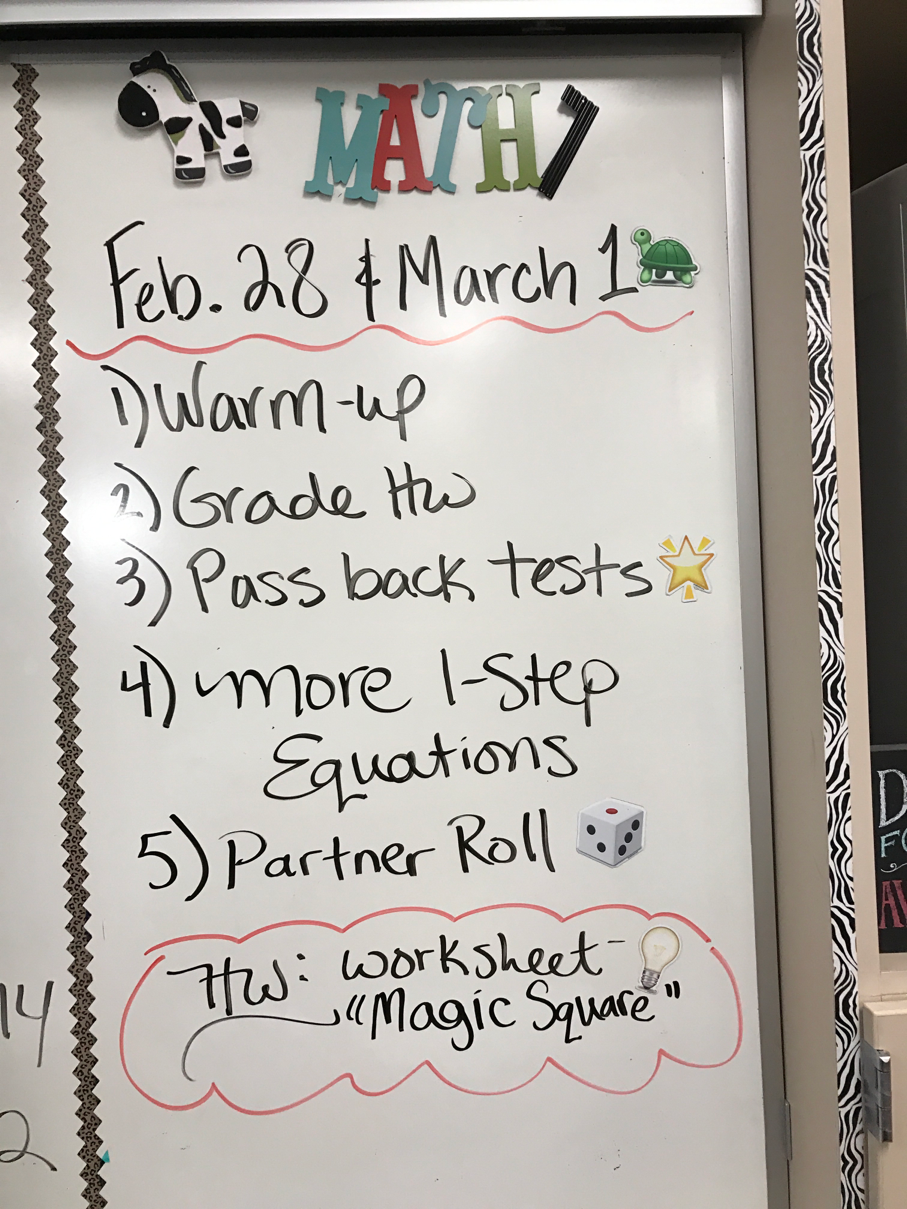 MATH 7
Feb. 28 & March 1
1) Warm-up
2) Grade HW
3) Pass back tests
4) more 1-Step
Equations
5) Partner Roll
HW: worksheet-
"Magic Square"
14
2
D
FO
AV